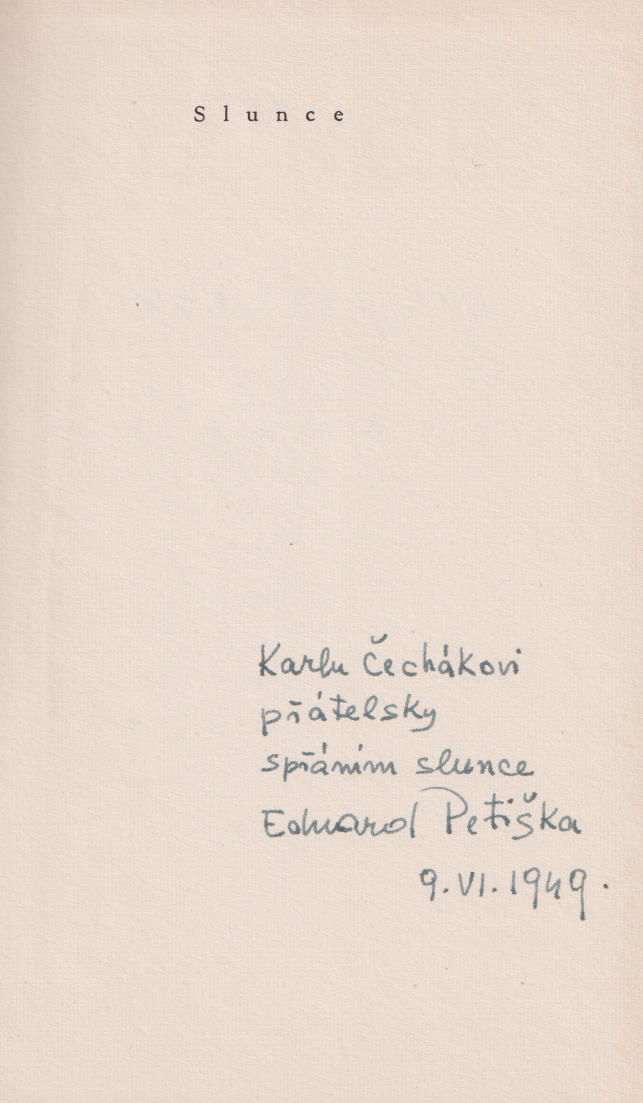 Slunce
Karlu Čechákovi
přátelsky
s přáním slunce
Eduard Petiška
9. VI. 1949.